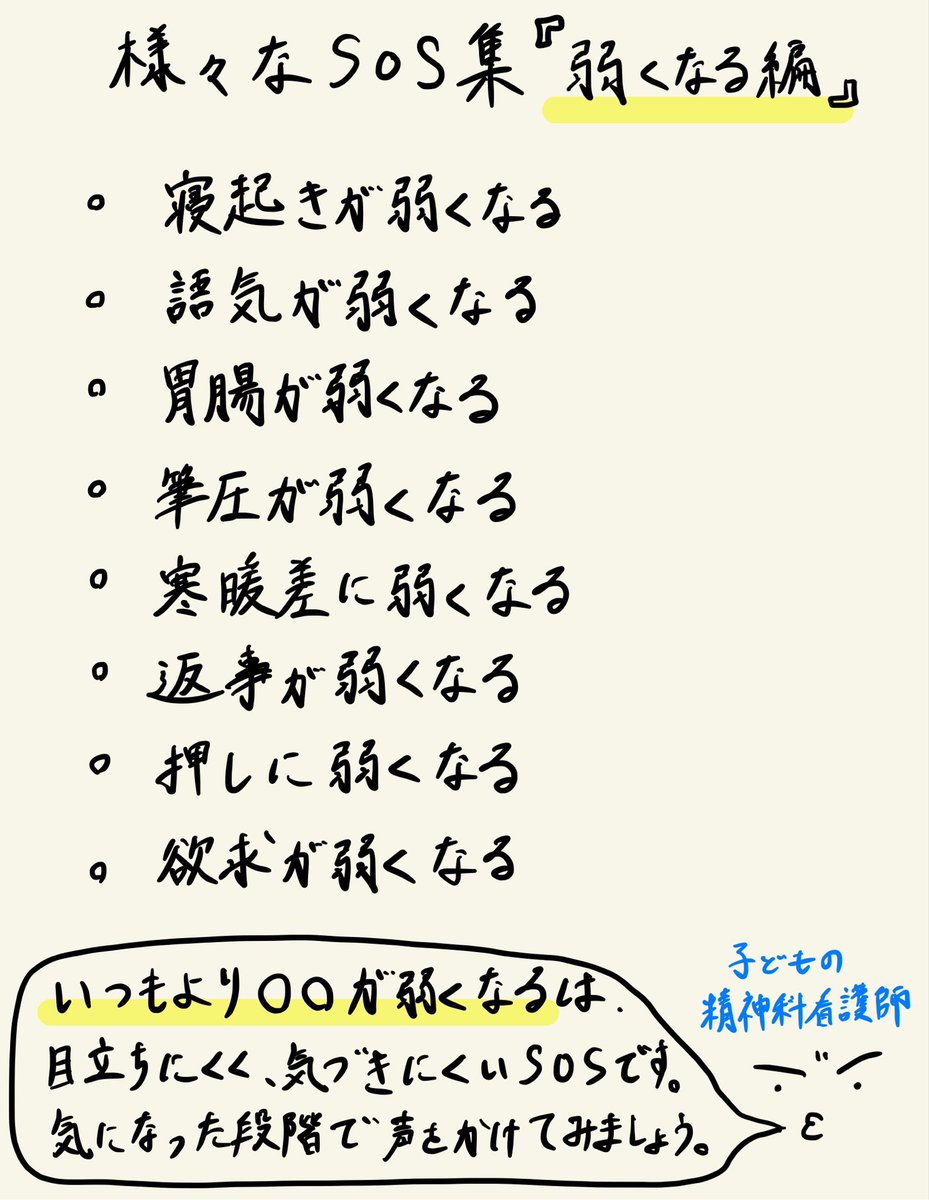 様々なSOS集『弱くなる編』
。寝起きが弱くなる
。語気が弱くなる
。胃腸が弱くなる
。筆圧が弱くなる
。寒暖差に弱くなる
。返事が弱くなる
。押しに弱くなる
。欲求が弱くなる
いつもより〇〇が弱くなるは、
目立ちにくく、気づきにくいSOSです。
気になった段階で声をかけてみましょう。
子どもの
精神科看護師